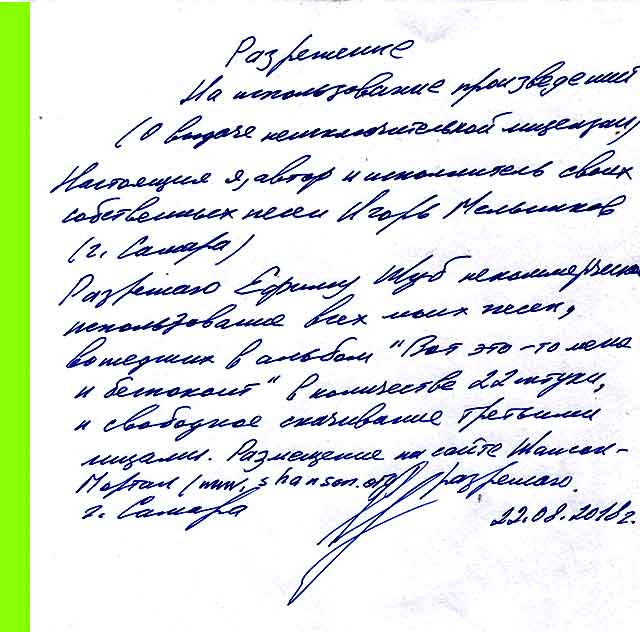 Разрешение
На использование произведений
(О выдаче неисключительной лицензии)
Настоящим я, автор и исполнитель своих
собственных песен Игорь Мельников
(г. Самара)
Разрешаю Ефиму Шуб некоммерческое
использование всех моих песен,
вошедших в альбом "Вот это-то меня
и беспокоит" в количестве 22 штуки,
и свободное скачивание третьими
лицами. Размещение на сайте Шансон-
Портал (www.shanson.org) разрешаю.
г. Самара
22.08.2018г.